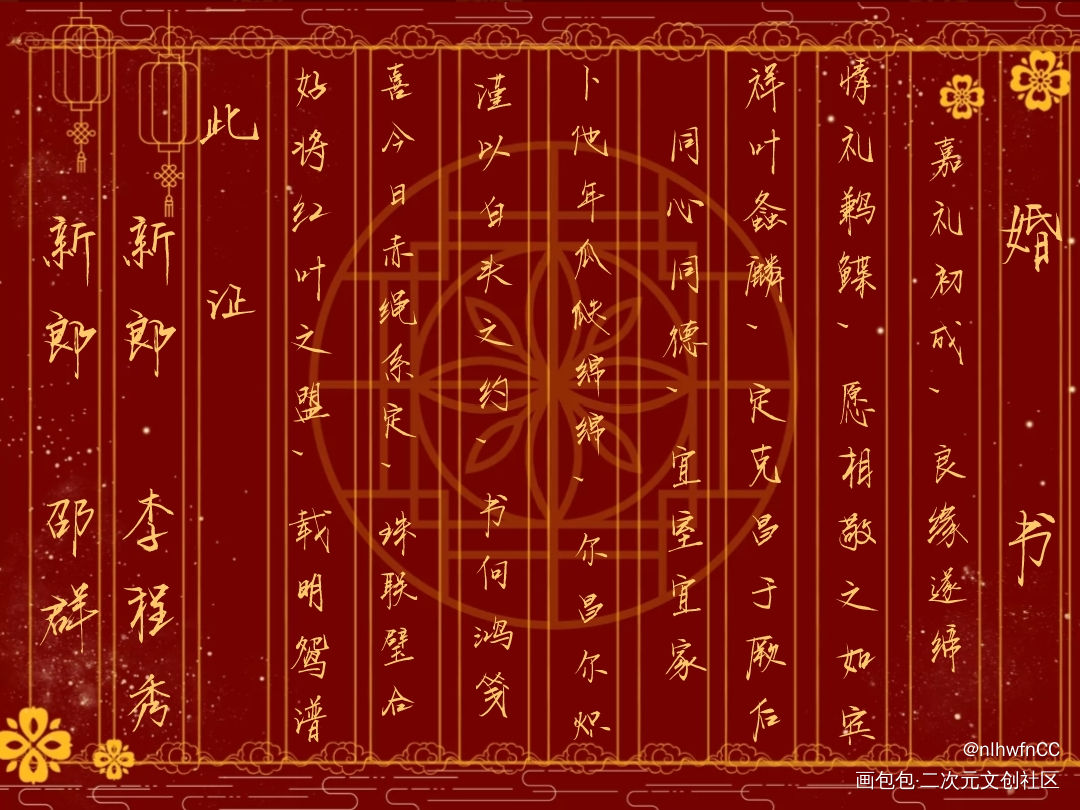 婚书
嘉礼初成、良缘遂缔
情礼鹣鲽、愿相敬之如宾
祥叶螽麟、定克昌于厥后
同心同德、宜室宜家
卜他年瓜瓞绵绵、尔昌尔炽
谨以白头之约、书向鸿笺
喜今日赤绳系定、珠联璧合
好将红叶之盟、载明鸳谱
此证
新郎 李程秀
新郎 邵群
@nlhwfnCC
画包包·二次元文创社区